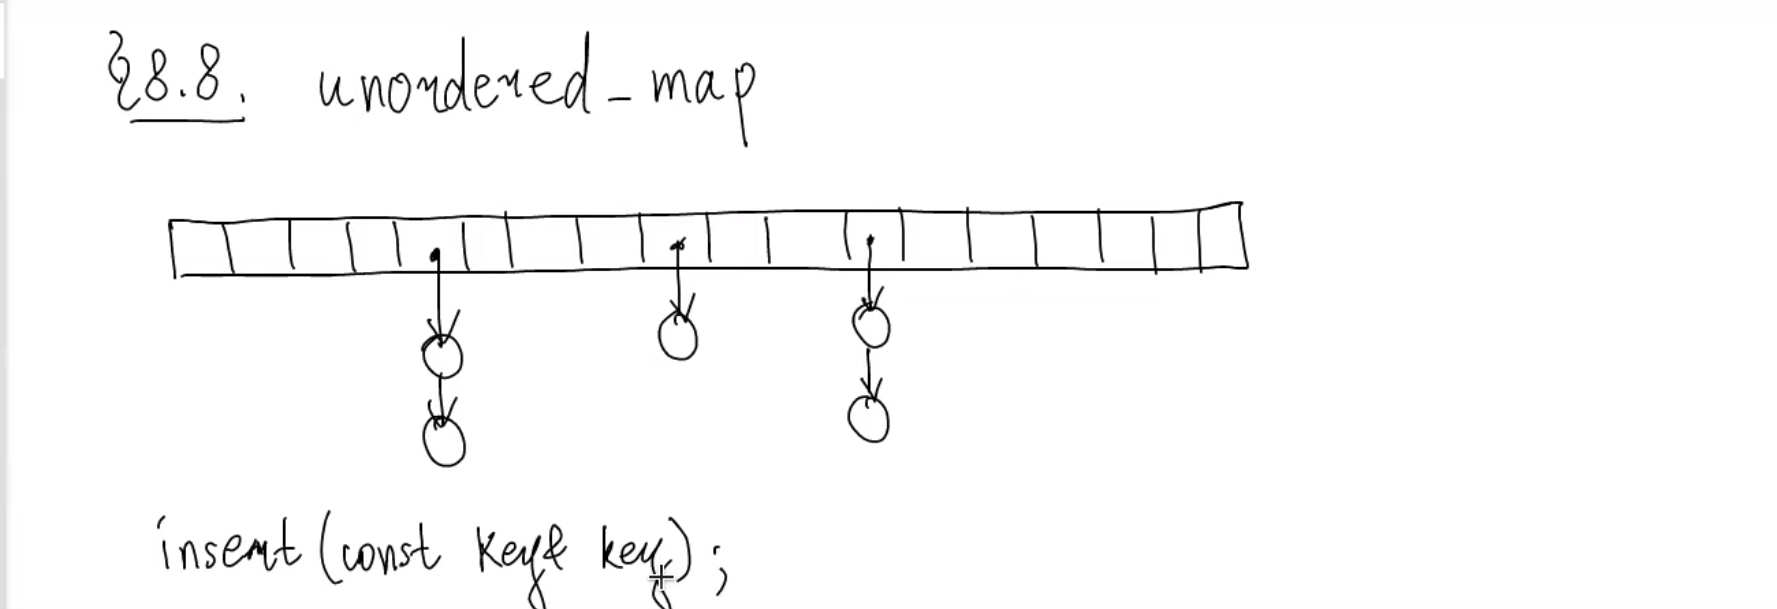 §8.8. unordered_map
insert(const Key& key);